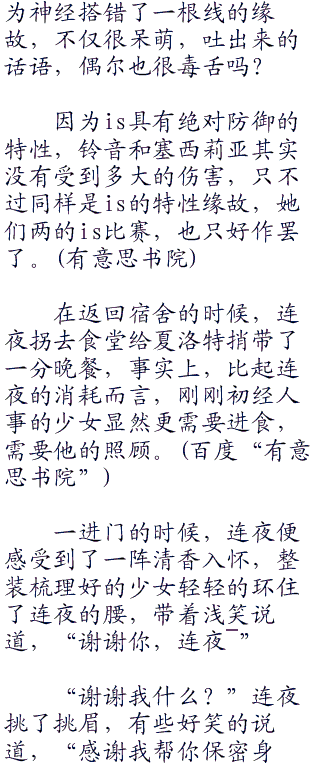 为神经搭错了一根线的缘
故，不仅很呆萌，吐出来的
话语，偶尔也很毒舌吗？
因为is具有绝对防御的
特性，铃音和塞西莉亚其实
没有受到多大的伤害，只不
过同样是is的特性缘故，她
们两的is比赛，也只好作罢
了。(有意思书院)
在返回宿舍的时候，连
夜拐去食堂给夏洛特捎带了
一分晚餐，事实上，比起连
夜的消耗而言，刚刚初经人
事的少女显然更需要进食，
需要他的照顾。(百度“有意
思书院”)
一进门的时候，连夜便
感受到了一阵清香入怀，整
装梳理好的少女轻轻的环住
了连夜的腰，带着浅笑说
道，“谢谢你，连夜¯”
“谢谢我什么？”连夜
挑了挑眉，有些好笑的说
道，“感谢我帮你保密身